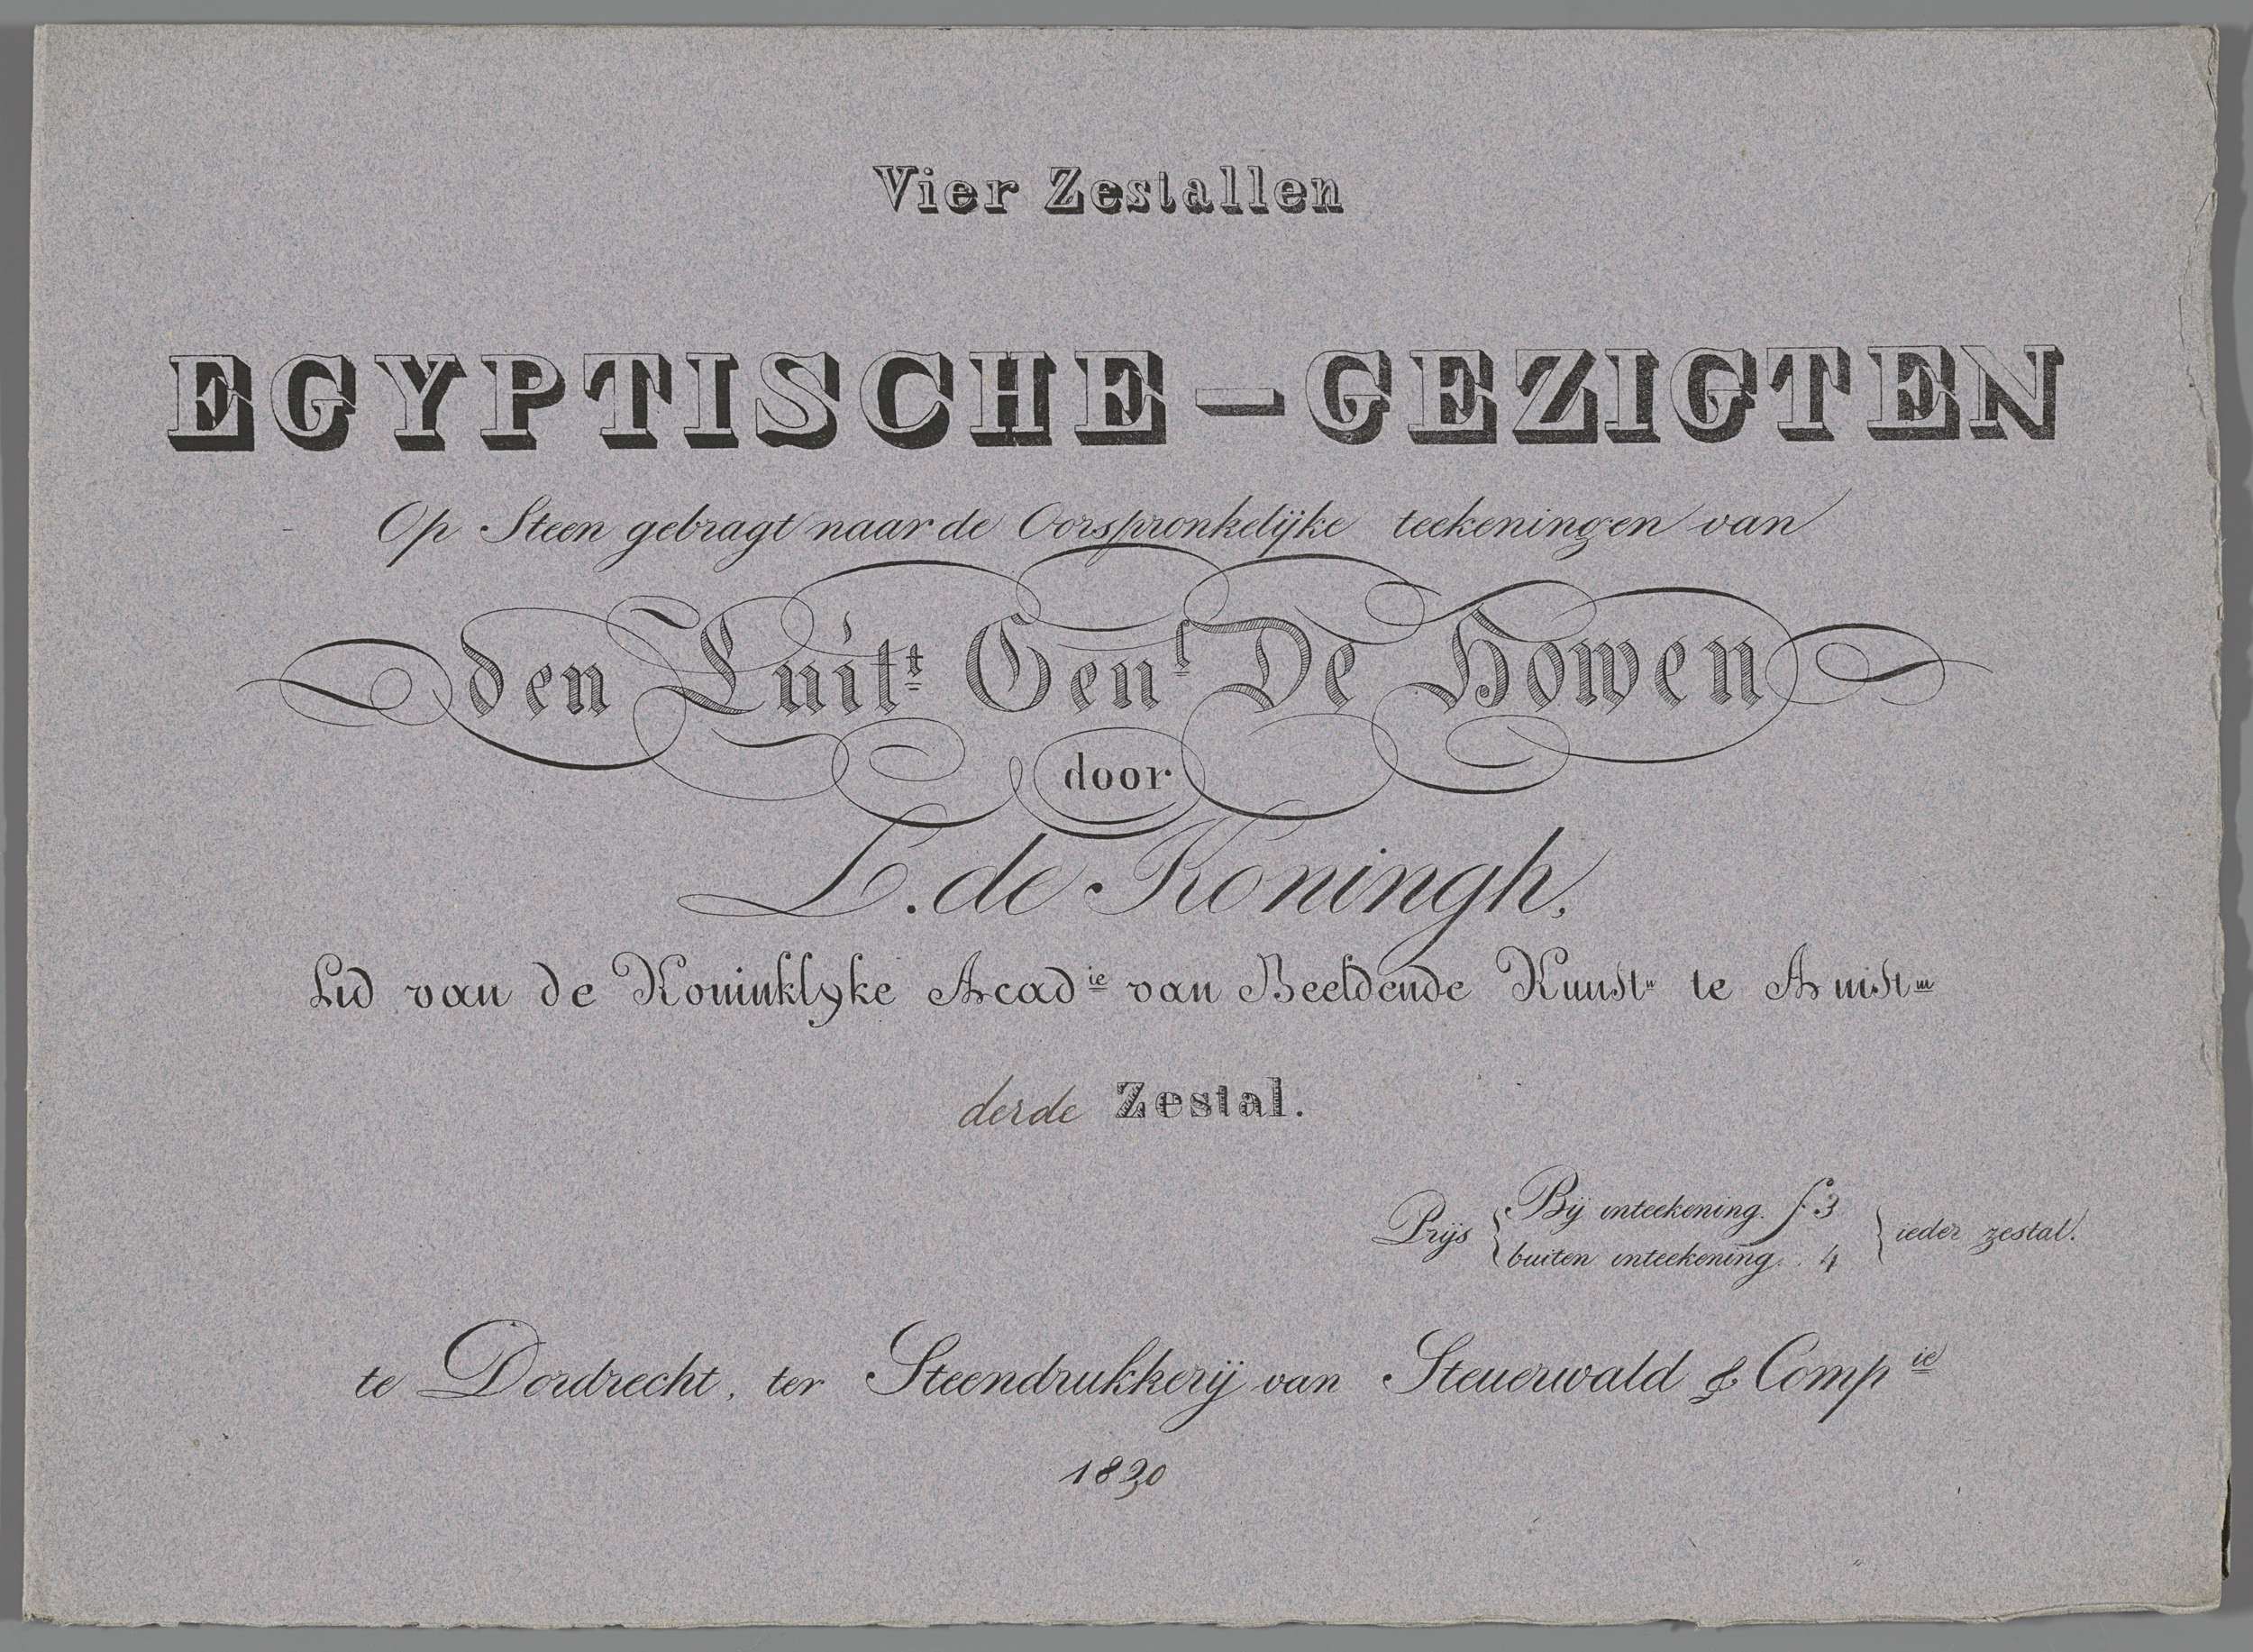 Vier Zestallen
EGYPTISCHE - GEZIGTEN
Op Steen gebragt naar de Oorspronkelijke teekeningen van
den Luitt Genl De Howen
door
L. de Koningh,
Lid van de Koninklyke Acadie van Beeldende Kunstn te Amstm
derde Zestal.
Prijs { Bij inteekening. f. 3
buiten inteekening. . 4 } ieder zestal.
te Dordrecht, ter Steendrukkerij van Steuerwald & Compie
1830